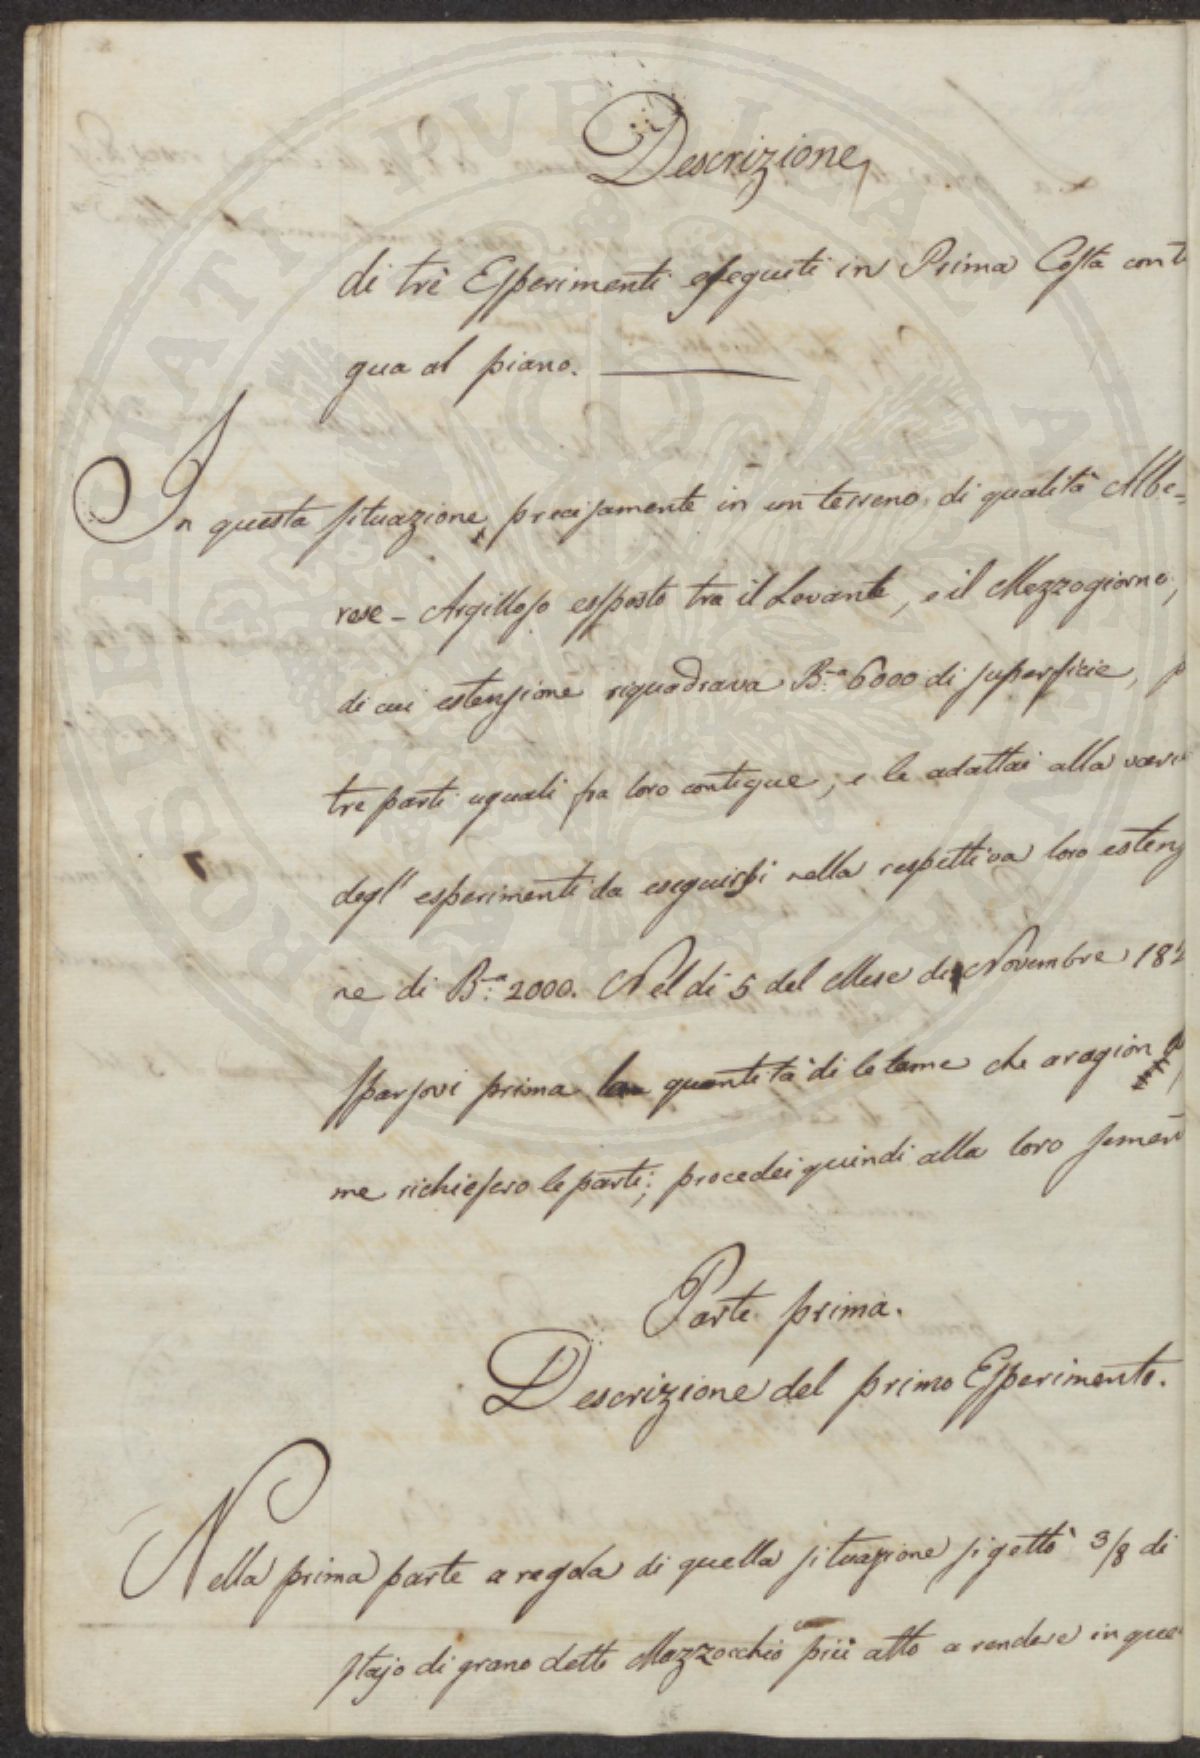 Descrizione,
di trè Esperimenti eseguiti in Prima Costa conti
gua al piano.
In questa situazione, precisamente in un terreno di qualità Albe-
rese - Argilloso esposto tra il Levante, e il Mezzogiorno,
di cui estensione riquadrava B.a 6000 di superficie,
tre parti uguali fra loro contigue, e le adattai alla
degl' esperimenti da eseguirsi nella respettiva loro estens
ne di B.a 2000. Nel dì 5 del Mese di Novembre 18
sparsovi prima la quantità di letame che a ragion
me richiesero le parti; procedei quindi alla loro sement
Parte prima.
Descrizione del primo Esperimento.
Nella prima parte a regola di quella situazione si gettò 3/8 di
stajo di grano detto Mazzocchio più atto a rendere in que
PROSPERITATI PUBLICAE AUGENDAE